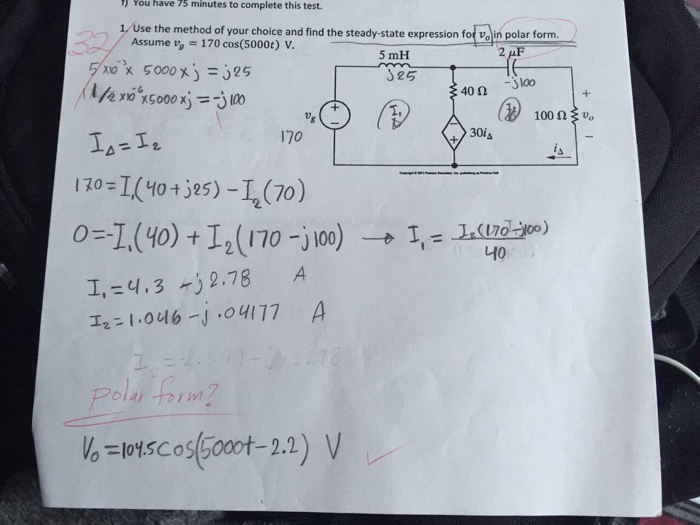 1) You have 75 minutes to complete this test.
32
1. Use the method of your choice and find the steady-state expression for v₀ in polar form.
Assume v_g = 170 cos(5000t) V.
5 mH
2 μF
5×10⁻³ × 5000 × j = j25
j25
-j100
1/2×10⁻⁶×5000×j = -j100
40 Ω
I₁
I₂
100 Ω
+
v₀
-
v_g
+
-
170
+
-
30i_Δ
i_Δ
I_Δ = I₂
170 = I₁(40+j25) - I₂(70)
0 = -I₁(40) + I₂(170 - j100) → I₁ = I₂(170 - j100)
40
I₁ = 4.3 - j2.78 A
I₂ = 1.046 - j.04177 A
polar form?
V₀ = 104.5cos(5000t - 2.2) V ✓